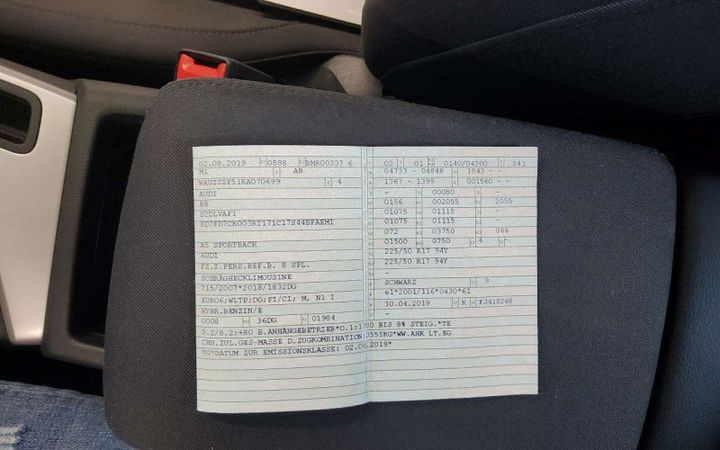 02.08.2019 0588 BMR00337 6
M1 AB
WAUZZZF51KA070699 4
AUDI
B8
AUDI
A5 SPORTBACK
FZ.Z.PERS.BEF.B. 8 SPL.
SCHRÄGHECKLIMOUSINE
715/2007*2018/1832DG
EURO6;WLTP;DG;PI/CI; M, N1 I
HYBR.BENZIN/E
0008 36DG 01984
7.2/8.2:+80 B.ANHÄNGEBETRIEB*O.1:1700 BIS 8% STEIG.*TE
CHN.ZUL.GES-MASSE D.ZUGKOMBINATION:3555KG*WW.AHK LT.EG
TG*DATUM ZUR EMISSIONSKLASSE: 02.08.2019*
02 01 0140/04200 241
04733 - 04848 1843 - -
1367 - 1399 001560 - -
- 00080 -
0156 002055 2055
01075 01115 -
01075 01115 -
072 03750 066
01500 0750 4 -
225/50 R17 94Y
225/50 R17 94Y
-
-
SCHWARZ 9
e1*2001/116*0430*61
30.04.2019 K FJ418268